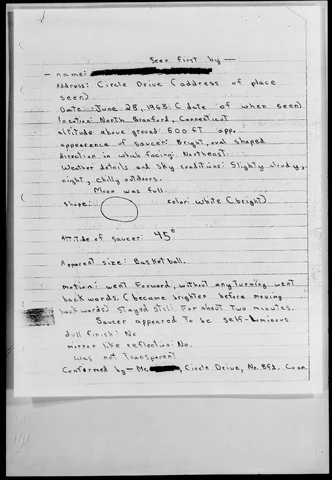 Seen first by —
— name:
Address: Circle Drive (address of place
seen)
Date: June 28, 1963. (date of when seen)
location: North Branford, Connecticut
altitude above ground 500 ft. app.
appearance of saucer: Bright, oval shaped
direction in which facing: Northeast.
Weather details and sky conditions: Slightly cloudy,
night, chilly outdoors.
Moon was full.
shape: color: white (bright)
Altitde of saucer: 45°
Apparent size: Basketball.
motion: went Forward, without any turning went
backwards. (became brighter before moving
backwards) Stayed still For about two minutes.
Saucer appeared To be self-luminous
dull finish: No
mirror like reflection: No.
Was not Transparent
Conformed by — Circle Drive, No. Bfd. Conn.